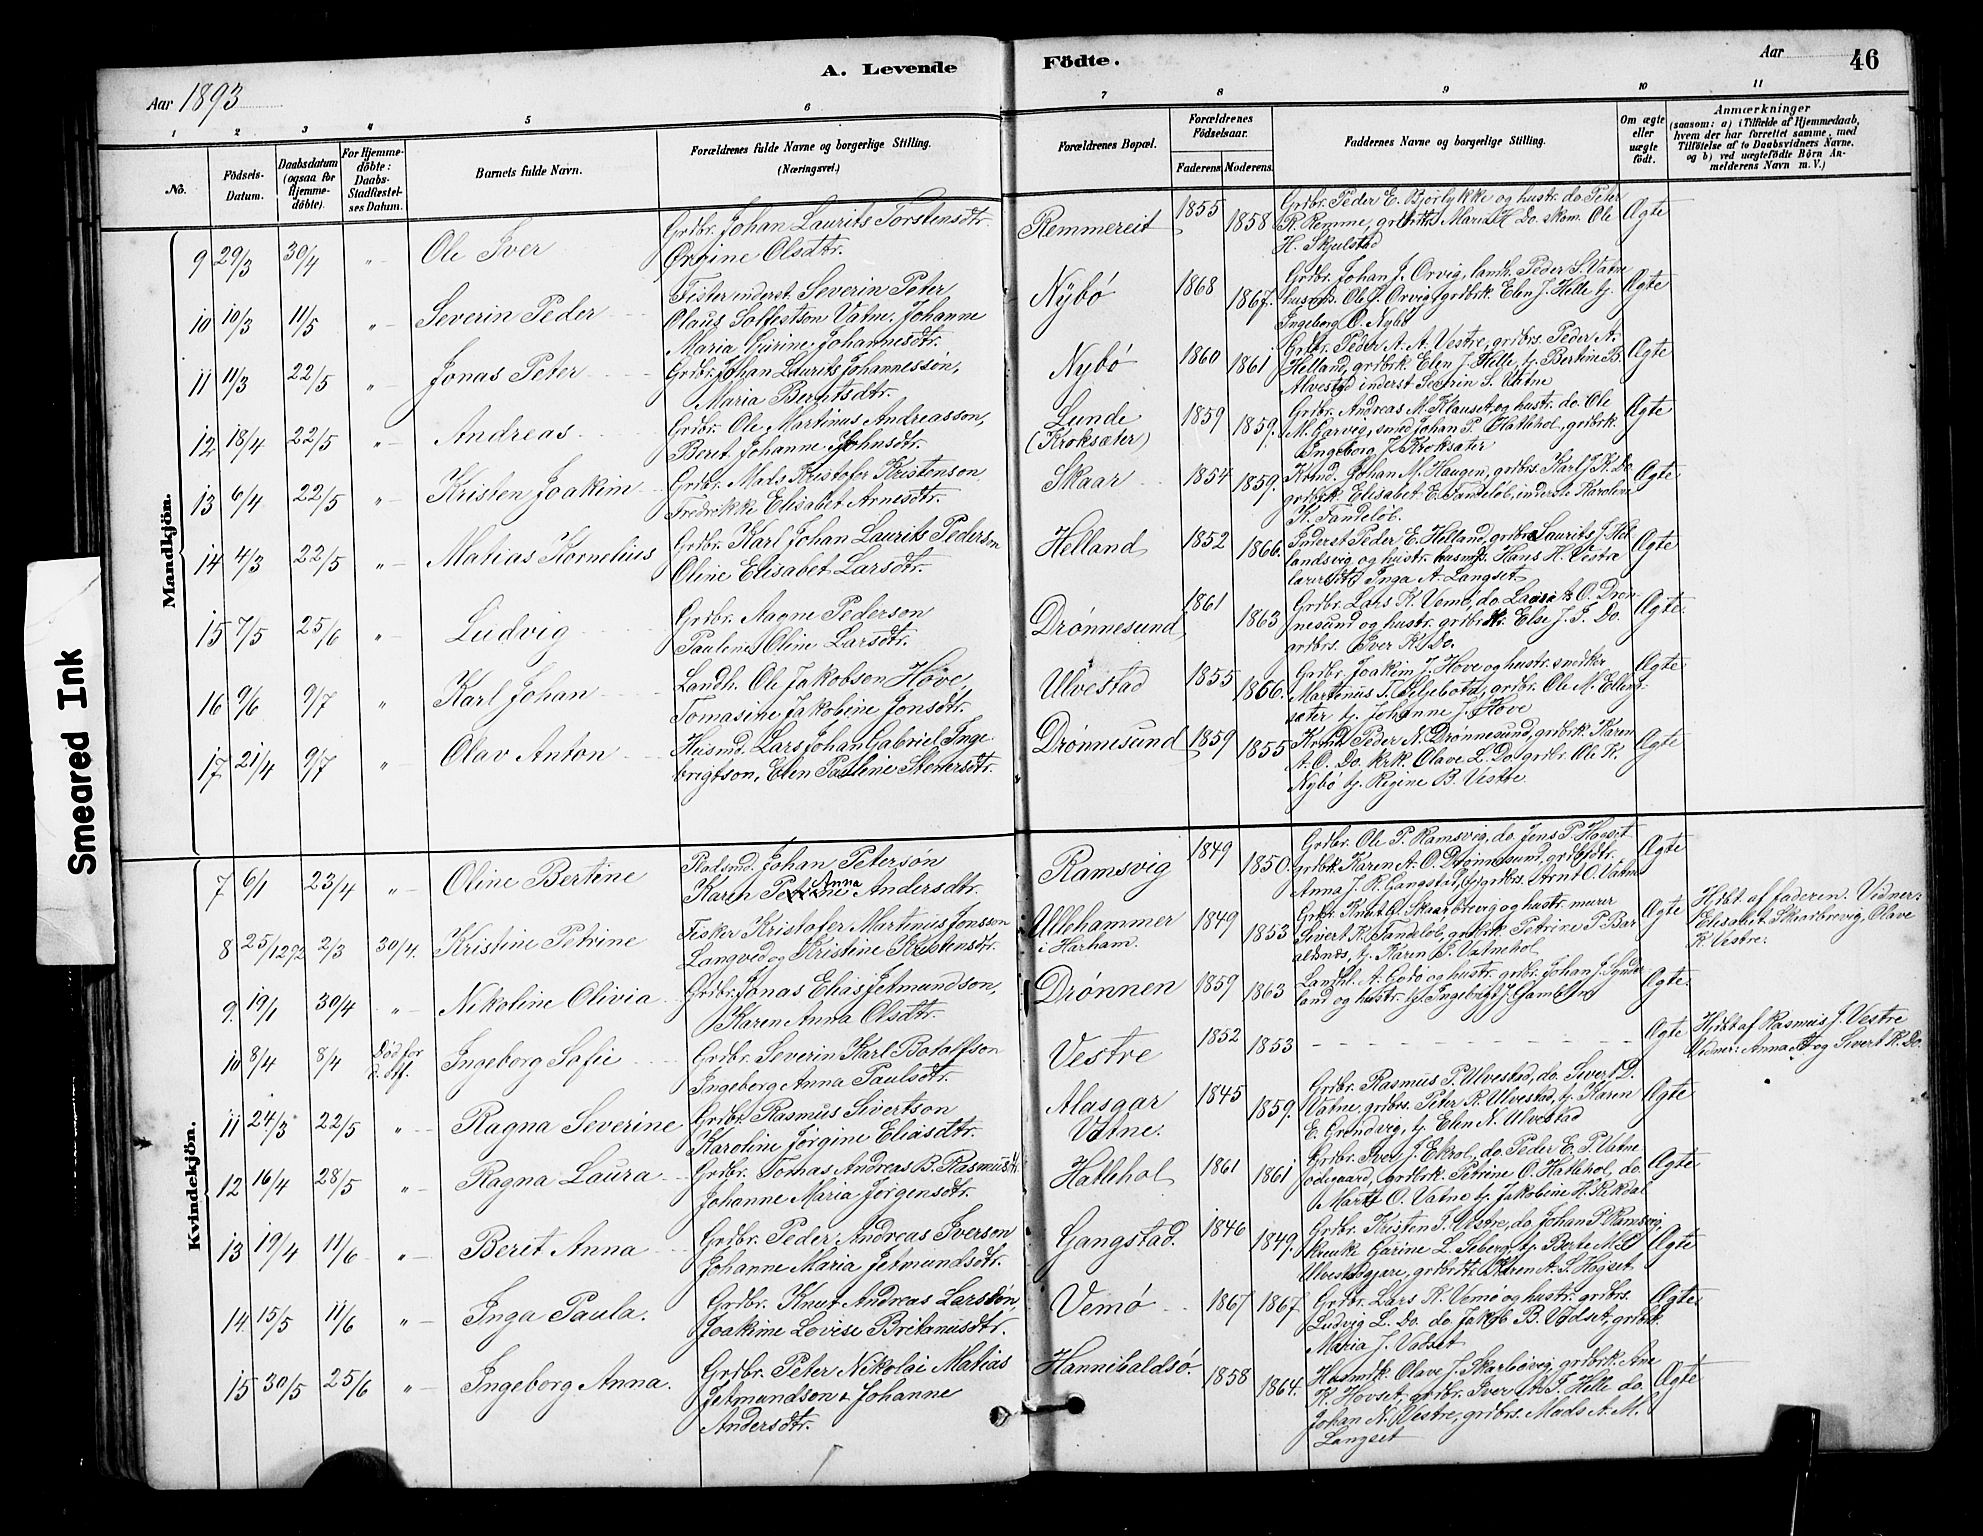 A. Levende Födte.
Aar 1893
Aar
46
1 2 3 4 5 6 7 8 9 10 11
No.
Födsels-Datum.
Daabsdatum (ogsaa for Hjemme-döbte).
For Hjemme-döbte: Daabs-Stadfæstel-ses Datum.
Barnets fulde Navn.
Forældrenes fulde Navne og borgerlige Stilling.
(Næringsvei.)
Forældrenes Bopæl.
Forældrenes Födselsaar.
Faderens. Moderens.
Faddernes Navne og borgerlige Stilling.
Om ægte eller uægte født.
Anmærkninger
(saasom: a) i Tilfælde af Hjemmedaab, hvem der har forrettet samme, med Tilföielse af to Daabsvidners Navne, og b) ved uægtefödte Börn An-melderens Navn m. V.)
Mandkjön.
9 29/3 30/4 " Ole Iver Grdbr. Johan Laurits Torstensdtr. Remmereit 1855 1858 Grdbr. Peder E. Bjørlykke og hustr. do. Peter Ægte
Ørjine Olsdtr. R. Remme, Maria H. Do. Ole
H. Skjelstad
10 10/3 11/5 " Severin Peder Fisker inderst. Severin Peter Nybø 1868 1867. Grdbr. Johan J. Orvig, landh. Peder S. Vatne Ægte
Olaus Vatne. Johanne husmd. Ole J. Orvig, grdbrk. Elen J. Helle tj.
Maria Gurine Johannesdtr. Ingeborg O. Nybø
11 11/3 22/5 " Jonas Peter Grdbr. Johan Laurits Johannessøn, Nybø 1860 1861 Grdbr. Peder A. A. Vestre, grdbrs. Peder A. Ægte
Maria Berntsdtr. Helland, grdbrk. Elen J. Helle, tj. Bertine B.
Alvestad inderst Severin S. Vatne
12 18/4 22/5 " Andreas Grdbr. Ole Martinus Andreasson, Lunde 1859 1859. Grdbr. Andreas M. Klauset og hustr. do. Ole Ægte
Beret Johanne Johnsdtr. (Kroksæter) M. Gjærvig, smed Johan P. Hatlehol, grdbrk.
Ingeborg J. Kroksæter
13 6/4 22/5 " Kristen Joakim Grdbr. Mads Kristofer Kristenson Skaar 1854 1859. Johan M. Haugen, grdbrs. Karl J. K. Do. Ægte
Fredrikke Elisabet Arnesdtr. grdbrk. Elisabet E. Tandeløb, inderste Karoline
K. Tandeløb.
14 4/3 22/5 " Matias Kornelius Grdbr. Karl Johan Laurits Pederson Helland 1852 1866. Inderst Peder E. Helland, grdbrs. Laurits J. Hel Ægte
Oline Elisabet Larsdtr. landsvig og hustr. husmd. Hans H. Vestre
Inga A. Langset
15 7/5 25/6 " Ludvig Grdbr. Aagne Pederson Drønnesund 1861 1863 Grdbr. Lars K. Vemø, do. O. Drøn Ægte.
Pauline Oline Larsdtr. nesund og hustr. grdbrk. Else J. J. Do.
grdbrs. Iver K. Do.
16 9/6 9/7 " Karl Johan Landh. Ole Jakobson Hove Ulvestad 1855 1856. Grdbr. Joakim J. Hove og hustr. Ægte.
Tomasine Jakobine Jonsdtr. Martinus T. Seljebotn, grdbr. Ole N. Elling
sæter tj. Johanne J. Hove
17 21/4 9/7 " Olav Anton Husmd. Lars Johan Gabriel Inge Drønnesund 1859 1855 Peder N. Drønnesund, grdbrk. Karen Ægte
brigtson, Elen Pauline A. O. Do. krk. Olave L. Do. grdbr. Ole K.
Nybø tj. Regine B. Vestre
Kvindekjön.
7 6/1 23/4 " Oline Bertine Pladsmd. Johan Petersøn Ramsvig 1849 1850. Grdbr. Ole P. Ramsvig, do. Jens P. Hogset Ægte
Karen Petrine Anna Andersdtr. grdbrk. Karen A. O. Drønnesund, grdbrdtr.
Anna J. R. Gangstad, grdbrs. Arnt O. Vatne
8 25/12 92 2/3 30/4. Kristine Petrine Fisker Kristofer Martinus Jonsson Ullehammer 1849 1853 Grdbr. Knut O. Skaarbrevig og hustr. murer Ægte Hjdbt af faderen. Vidner:
Langved og Kristine Kristensdtr. i Harham. Sivert K. Tandeløb, grdbrk. Petrine P. Bar Elisabet Skaarbrevig, Olave
aldsnes, tj. Karen J. Vatnehol K. Vestre.
9. 19/1 30/4 " Nikoline Olivia Grdbr. Jonas Elias Jetmundson, Drønnen 1859 1863 Landhl. A. Godø og hustr. grdbr. Johan J. Synder Ægte.
Karen Anna Olsdtr. land og hustr. tj. Ingebrigt J. Gamlem
10 8/4 8/4 Død før d. Stf. Ingeborg Sofie Grdbr. Severin Karl Botolfson Vestre 1852 1853 – – – – Ægte Hjdbt af Rasmus J. Vestre
Ingeborg Anna Paulsdtr. Vidner: Anna og Sivert K. Do.
11 24/3 22/5 " Ragna Severine Grdbr. Rasmus Sivertson Alasgar 1845 1859. Grdbr. Rasmus P. Ulvestad, do. Sivert D. Ægte
Karoline Jørgine Eliasdtr. Vatne. Vatne, grdbrs. Peter R. Ulvestad, tj. Karen
E. Grøndvig, tj. Elen N. Ulvestad
12 16/4 28/5 " Ragna Laura Grdbr. Tomas Andreas B. Rasmus Hatlehol 1861 1861 Grdbr. Iver J. Ekrol, do. Peder E. P. Vatne Ægte
Johanne Maria Jørgensdtr. ødegaard, grdbrk. Petrine O. Hatlehol, do.
Marte O. Vatne tj. Jakobine K. Rekdal
13 19/4 11/6 " Berit Anna Grdbr. Peder Andreas Iverson Gangstad. 1846 1849. Grdbr. Kristen J. Vestre, do. Johan P. Ramsvig, Ægte
Johanne Maria Jetmundsdtr. Garine L. Seberg, tj. Berte M. D.
Karen A. S. Hogset
14. 15/5 11/6 " Inga Paula. Grdbr. Knut Andreas Larssøn, Vemø 1867 1867. Grdbr. Lars K. Vemø og hustr. grdbrs. Ægte.
Joakime Lovise Britanusdtr. Ludvig L. Do. do. Jakob B. Vadset, grdbrk.
Maria J. Vadset
15 30/5 25/6 " Ingeborg Anna. Grdbr. Peter Nikolai Matias Hannibaldsø. 1858 1864. Husmdk. Olave J. Skarbøvig, grdbrk. Ane Ægte
Jetmundson & Johanne K. Hovset, grdbr. Iver J. Helle do.
Andersdtr. Johan N. Vestre, grdbrs. Mads A. M.
Langset
Smeared Ink